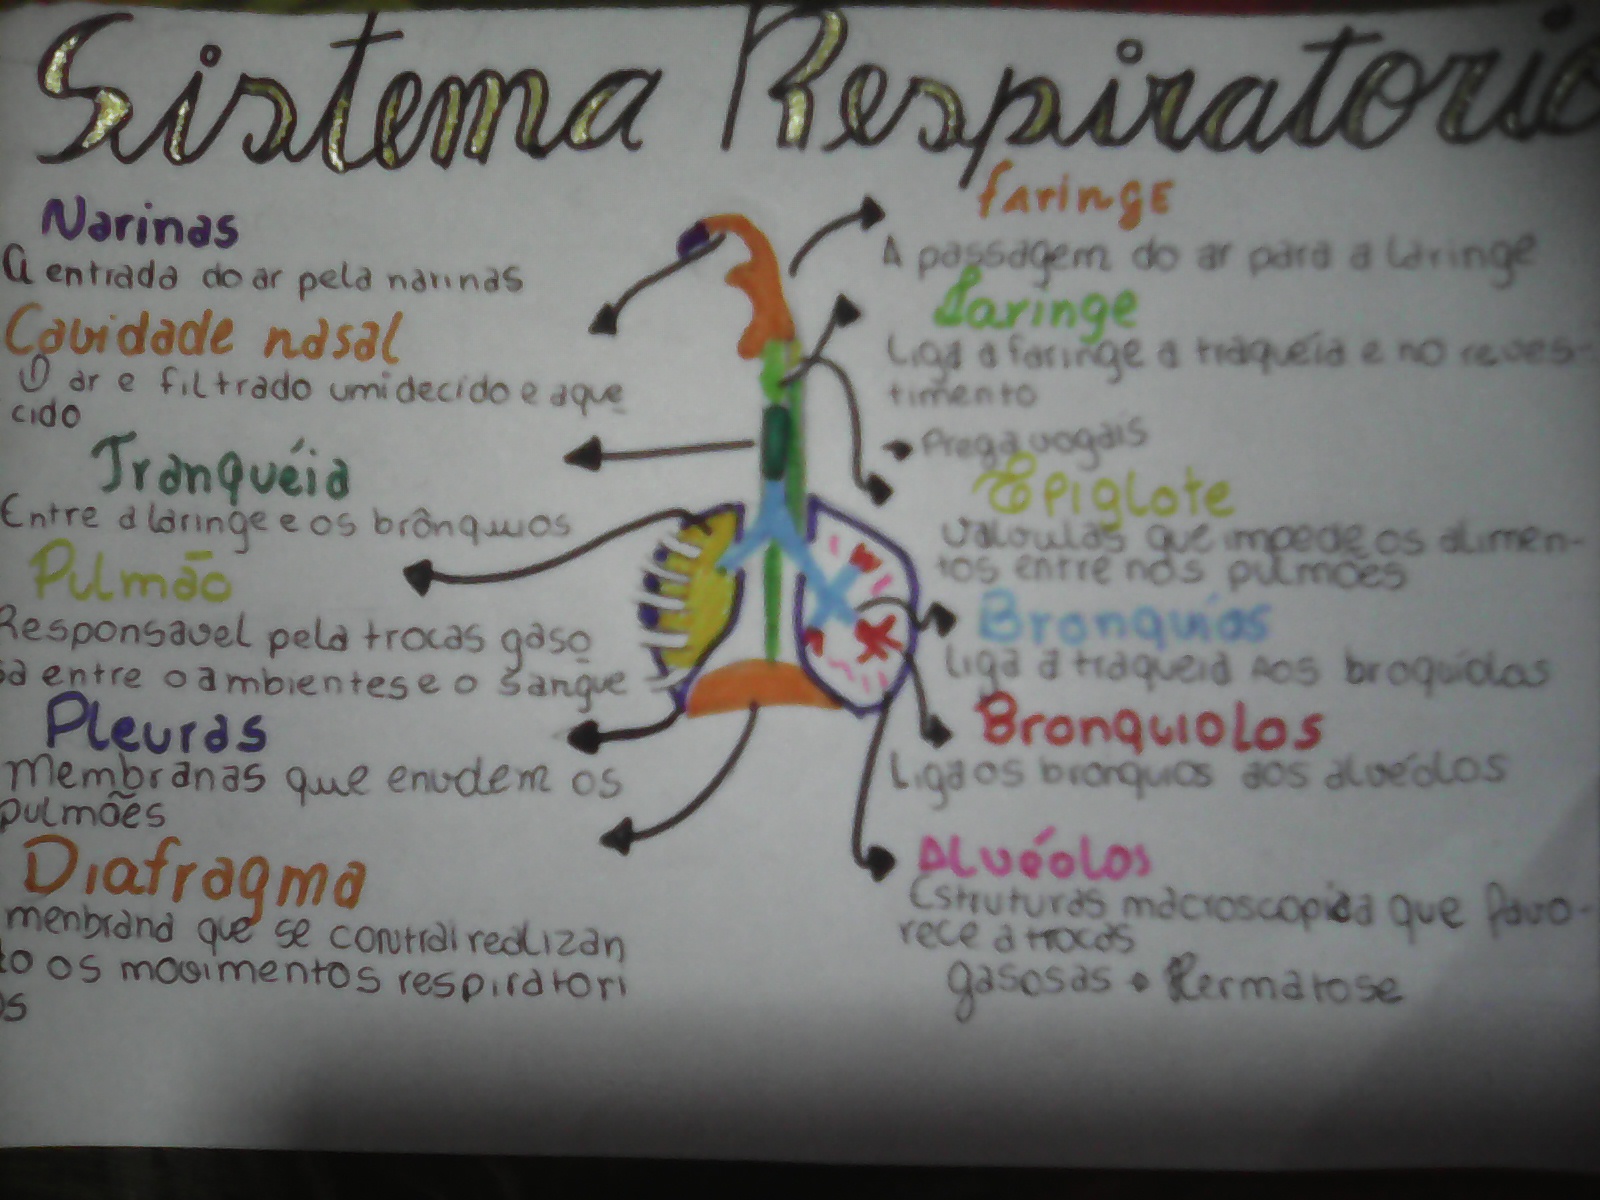 Sistema Respiratorio
Narinas
A entrada do ar pela narinas
Cavidade nasal
O ar e filtrado umidecido e aque
cido
Tranquéia
Entre a laringe e os brônquios
Pulmão
Responsavel pela trocas gaso
sa entre o ambientes e o sangue
Pleuras
Membranas que envolem os
pulmões
Diafragma
menbrana que se contrai realizan
to os movimentos respiratori
os
faringe
A passagem do ar para a laringe
Laringe
Liga a faringe a traquéia e no reves-
timento
Prega vogais
Epiglote
Valvulas que impede os alimen-
tos entre nos pulmões
Bronquíos
Liga a traqueia aos broquíolos
Bronquiolos
Liga os bronquios aos alvéolos
Alvéolos
Estruturas macroscopica que favo-
rece a trocas
gasosas